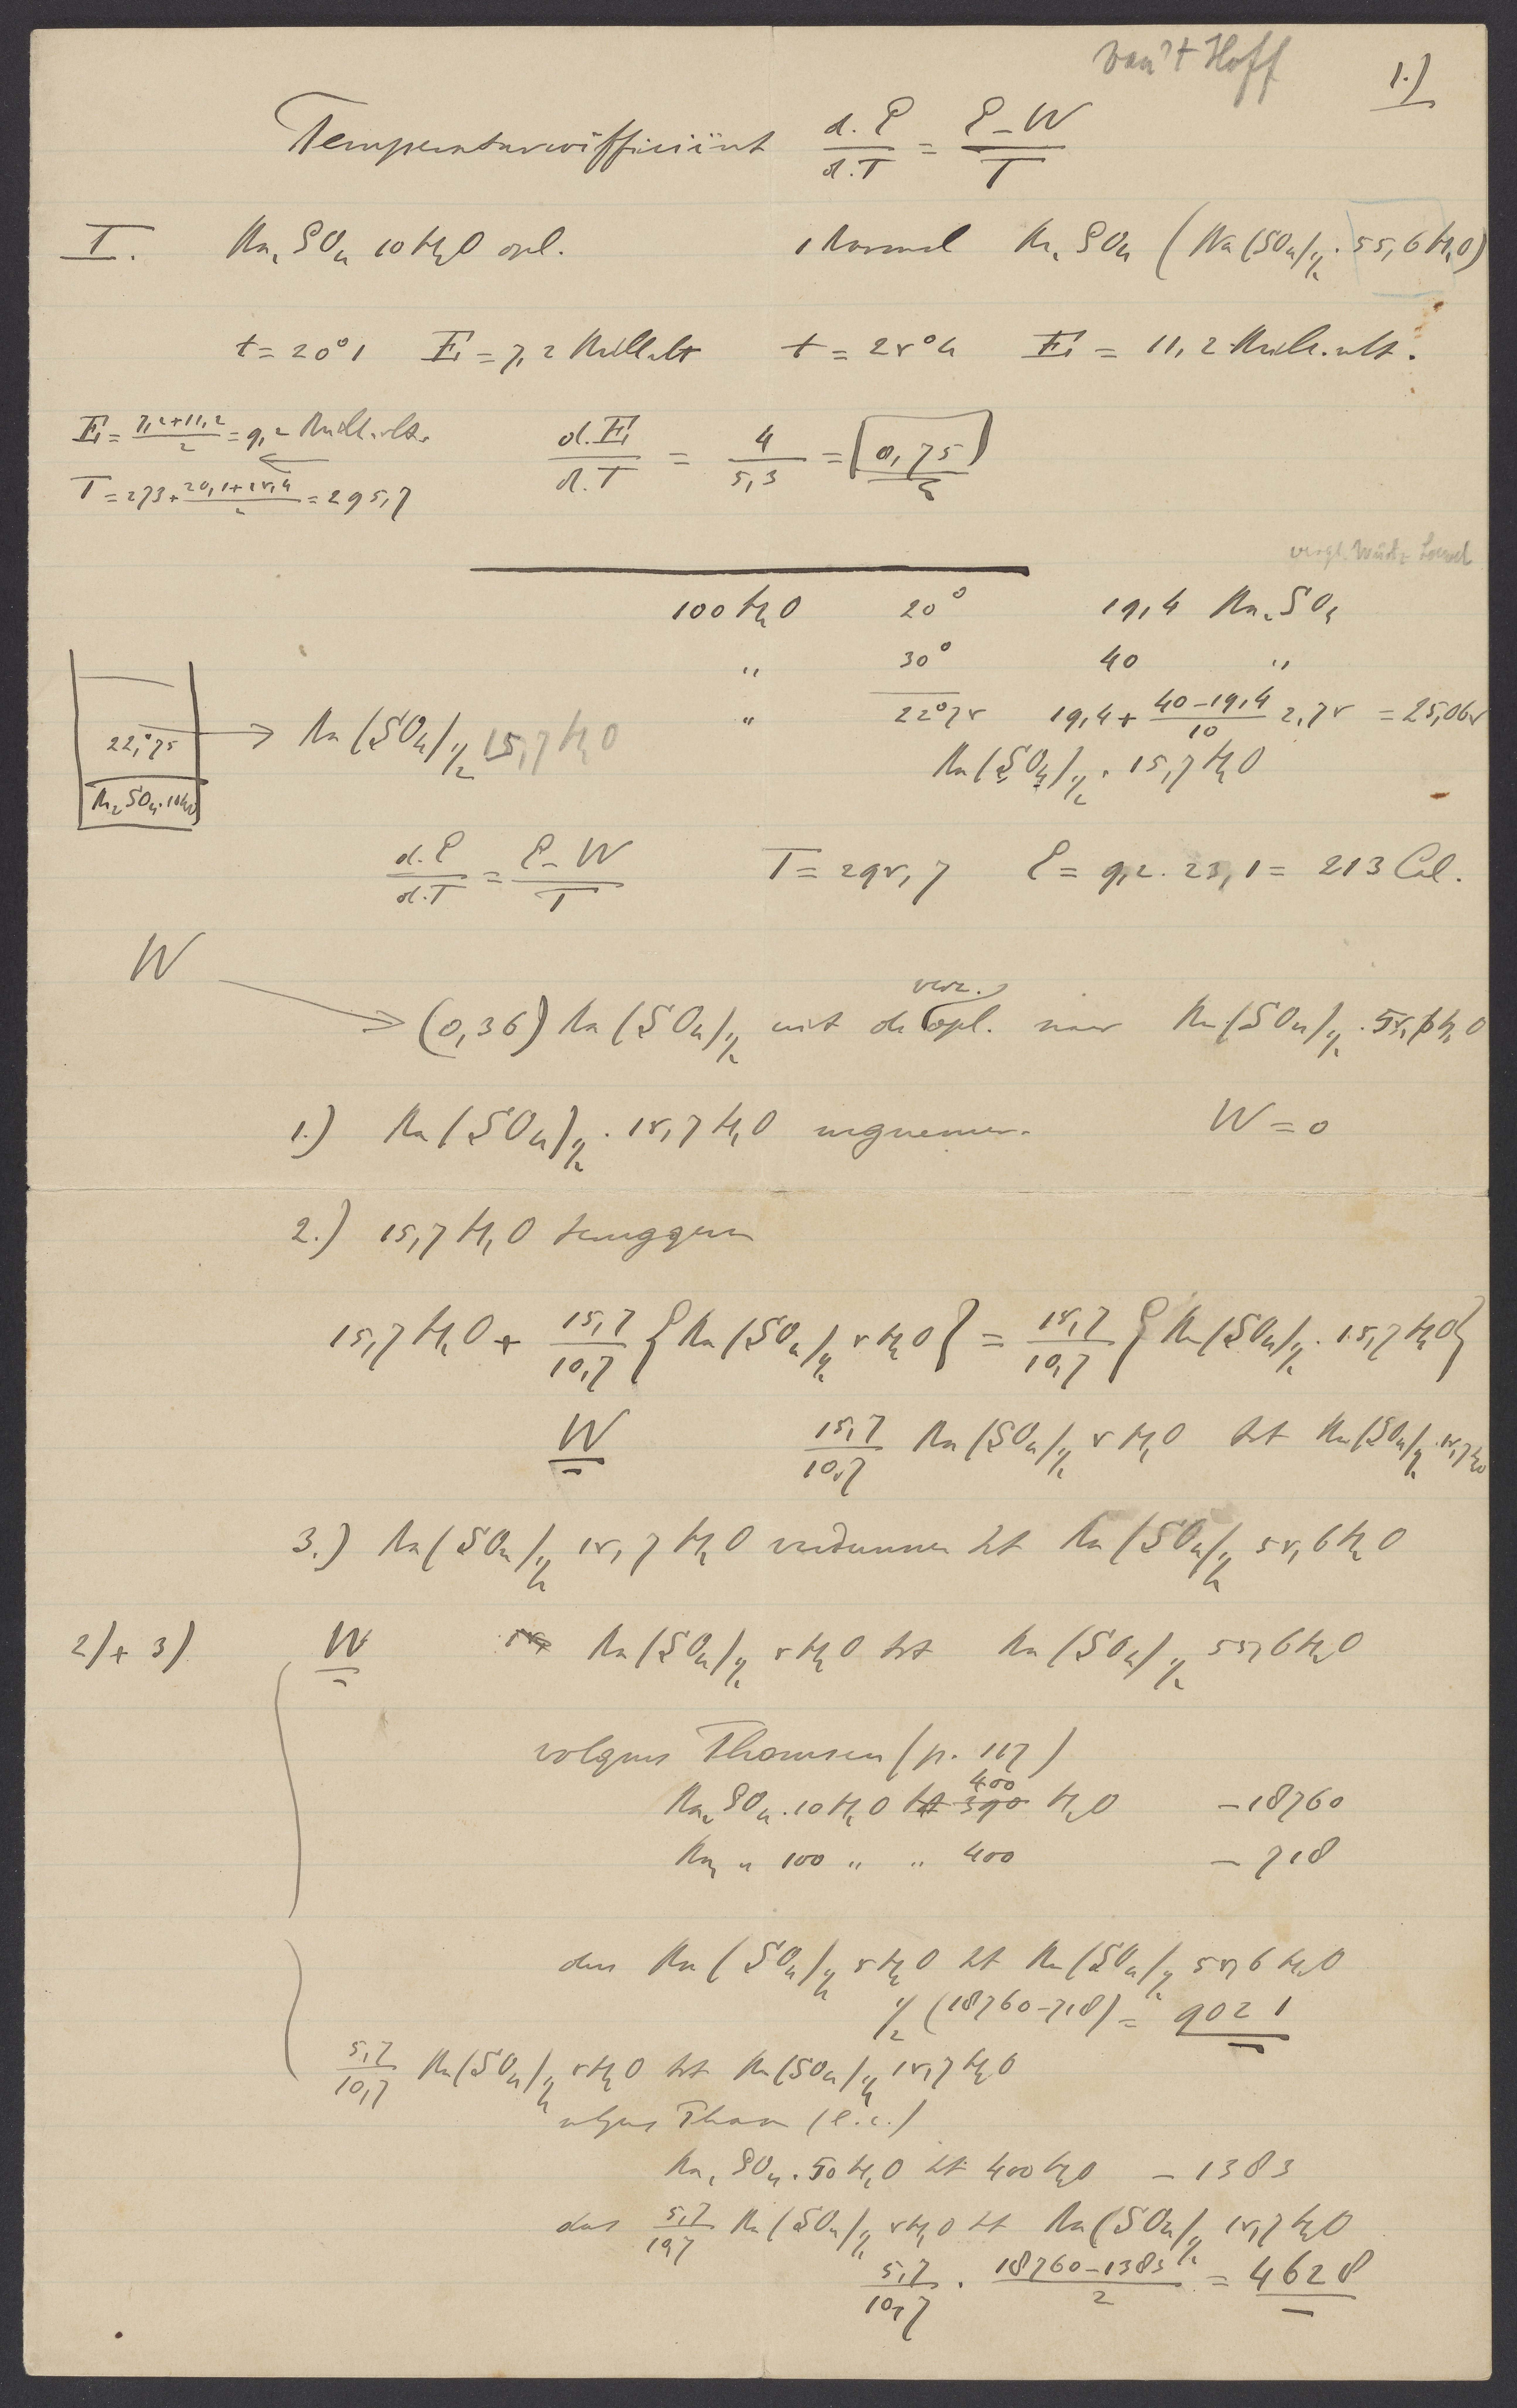 van't Hoff
1.)
Temperatuurcoëfficiënt d.E/d.T = E–W/T
I. Na2SO4 10H2O opl. 1 Normal Na2SO4 (Na(SO4)½ . 55,6H2O)
t = 20°1 E = 7,2 Millivolt t = 25°4 E = 11,2 Milli.volt.
E = 7,2+11,2/2 = 9,2 Millivolt.
d.E/d.T = 4/5,3 = 0,75
T = 273 + 20,1+25,4/2 = 295,7
100 H2O 20° 19,4 Na2SO4
" 30° 40 "
" 22°75 19,4 + 40–19,4/10 2,75 = 25,065
22,°75 → Na(SO4)½ 15,7H2O
Na(SO4)½ . 15,7H2O
Na2SO4.10H2O
d.E/d.T = E–W/T T = 295,7 E = 9,2 . 23,1 = 213 Cal.
W
verz.
(0,36) Na(SO4)½ uit de opl. naar Na(SO4)½ . 55,6H2O
1.) Na(SO4)½ . 15,7H2O wegnemen. W = 0
2.) 15,7H2O teruggeven
15,7H2O + 15,7/10,7 {Na(SO4)½ 5H2O} = 15,7/10,7 {Na(SO4)½ . 15,7H2O}
W 15,7/10,7 Na(SO4)½ 5H2O tot Na(SO4)½ . 15,7H2O
3.) Na(SO4)½ 15,7H2O verdunnen tot Na(SO4)½ 55,6H2O
2) + 3) W Na(SO4)½ 5H2O tot Na(SO4)½ 55,6H2O
volgens Thomsen (p. 117)
400
Na2SO4.10H2O tot 390 H2O –18760
Na2 " 100 " " 400 – 718
dus Na(SO4)½ 5H2O tot Na(SO4)½ 55,6H2O
½(18760–718) = 9021
5,7/10,7 Na(SO4)½ 5H2O tot Na(SO4)½ 15,7H2O
volgens Thom (l.c.)
Na2SO4.50H2O tot 400H2O – 1383
dus 5,7/10,7 Na(SO4)½ 5H2O tot Na(SO4)½ 15,7H2O
5,7/10,7 . 18760–1383/2 = 4628